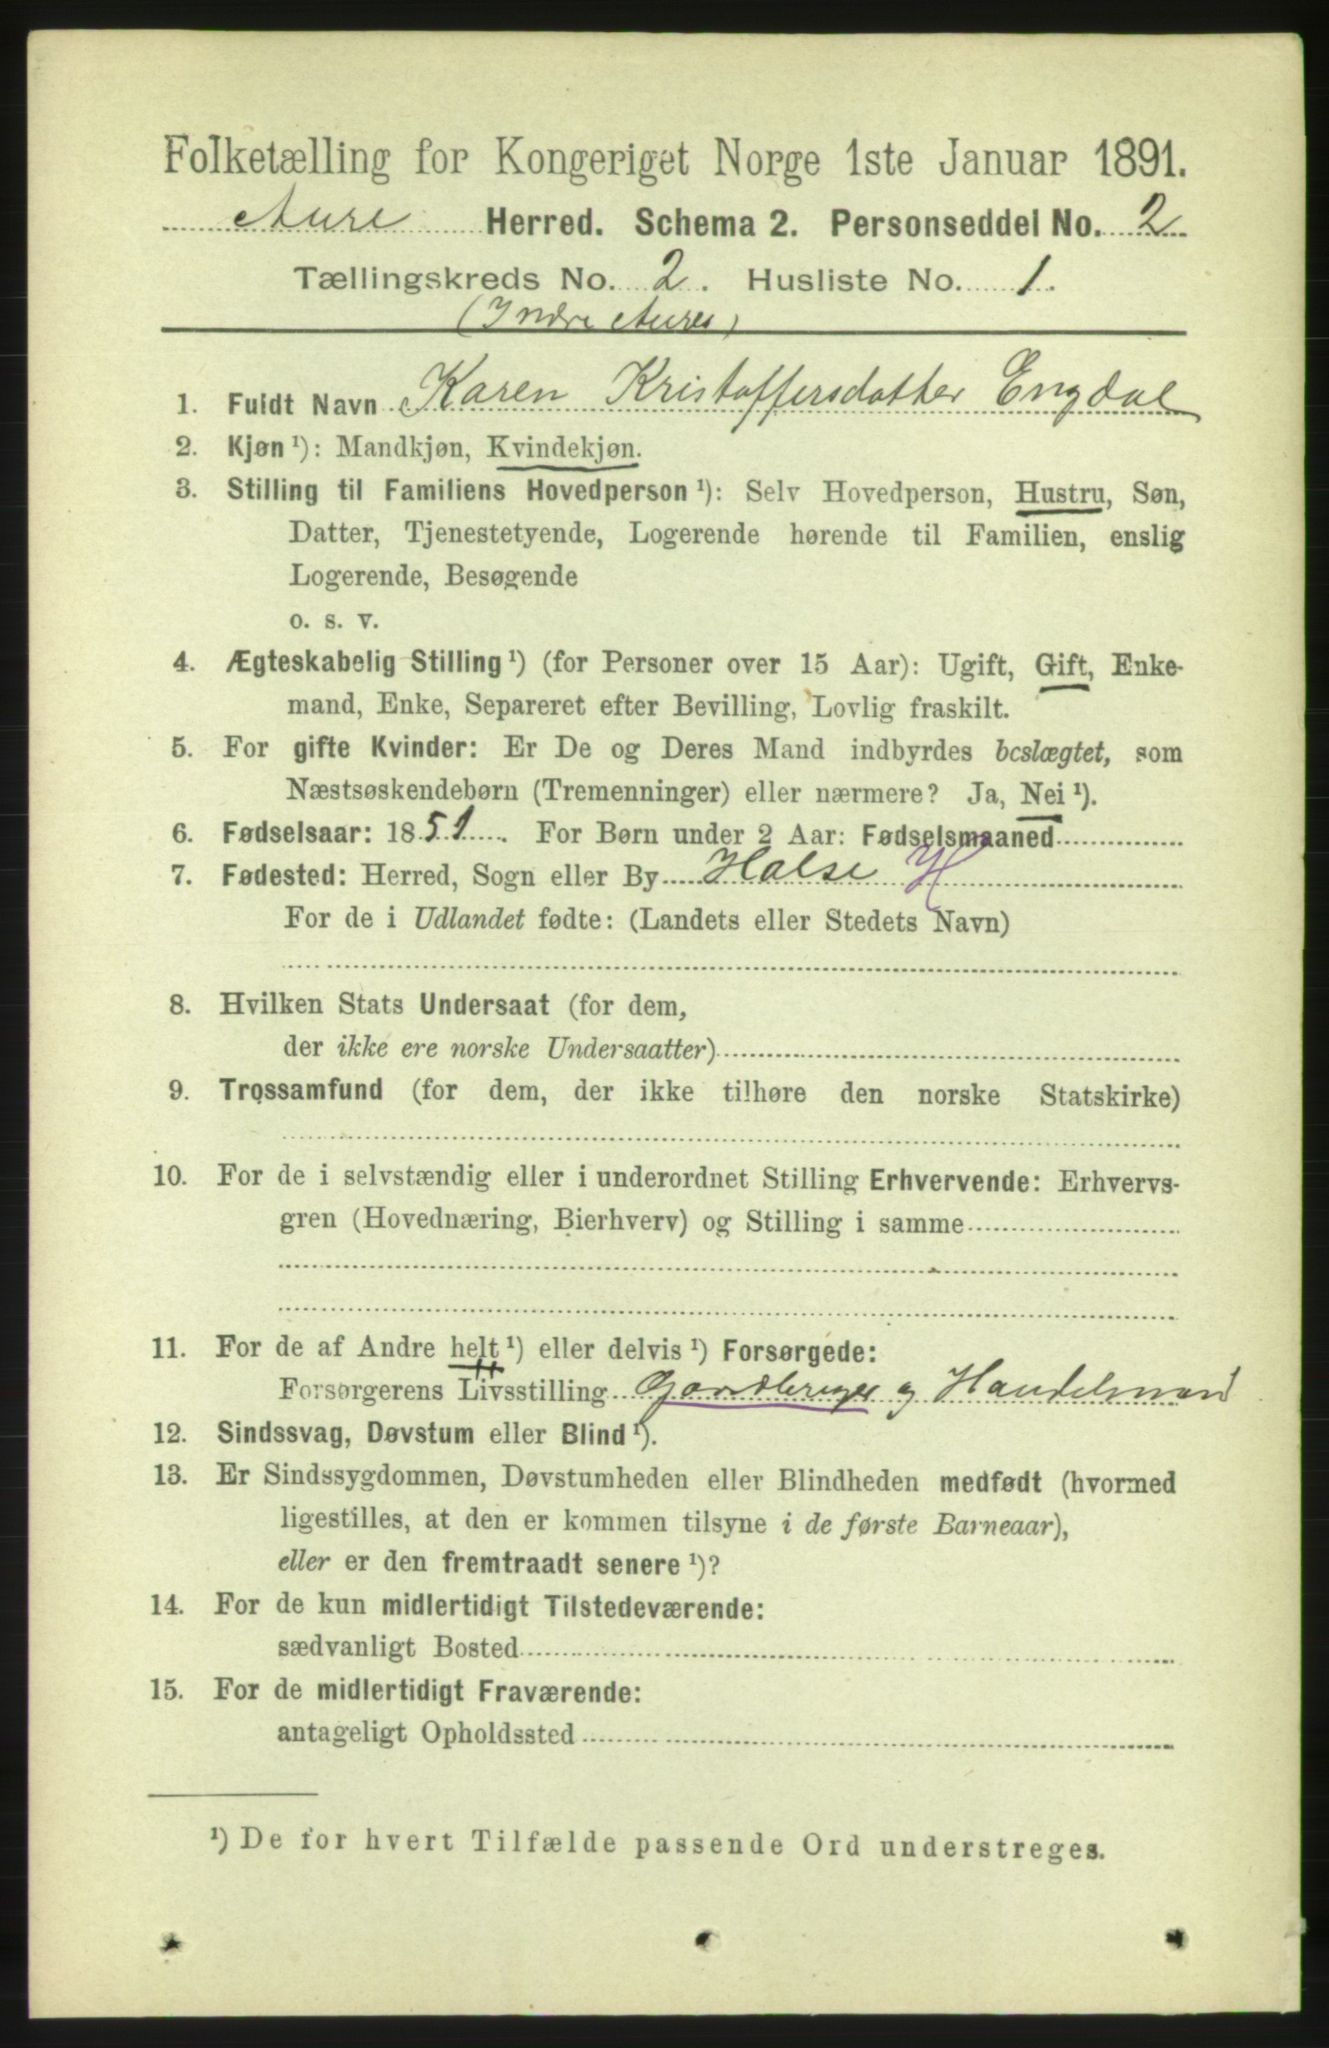 Folketælling for Kongeriget Norge 1ste Januar 1891.
Aure Herred. Schema 2. Personseddel No. 2
Tællingskreds No. 2. Husliste No. 1.
(Indre Aures)
1. Fuldt Navn Karen Kristoffersdatter Engdal
2. Kjøn ¹): Mandkjøn, Kvindekjøn.
3. Stilling til Familiens Hovedperson ¹): Selv Hovedperson, Hustru, Søn,
Datter, Tjenestetyende, Logerende hørende til Familien, enslig
Logerende, Besøgende
o. s. v.
4. Ægteskabelig Stilling ¹) (for Personer over 15 Aar): Ugift, Gift, Enke-
mand, Enke, Separeret efter Bevilling, Lovlig fraskilt.
5. For gifte Kvinder: Er De og Deres Mand indbyrdes beslægtet, som
Næstsøskendebørn (Tremenninger) eller nærmere? Ja, Nei ¹).
6. Fødselsaar: 1851. For Børn under 2 Aar: Fødselsmaaned
7. Fødested: Herred, Sogn eller By Halse H
For de i Udlandet fødte: (Landets eller Stedets Navn)
8. Hvilken Stats Undersaat (for dem,
der ikke ere norske Undersaatter)
9. Trossamfund (for dem, der ikke tilhøre den norske Statskirke)
10. For de i selvstændig eller i underordnet Stilling Erhvervende: Erhvervs-
gren (Hovednæring, Bierhverv) og Stilling i samme
11. For de af Andre helt ¹) eller delvis ¹) Forsørgede:
Forsørgerens Livsstilling Gaardbruger og Handelsmand
12. Sindssvag, Døvstum eller Blind ¹).
13. Er Sindssygdommen, Døvstumheden eller Blindheden medfødt (hvormed
ligestilles, at den er kommen tilsyne i de første Barneaar),
eller er den fremtraadt senere ¹)?
14. For de kun midlertidigt Tilstedeværende:
sædvanligt Bosted
15. For de midlertidigt Fraværende:
antageligt Opholdssted
¹) De for hvert Tilfælde passende Ord understreges.